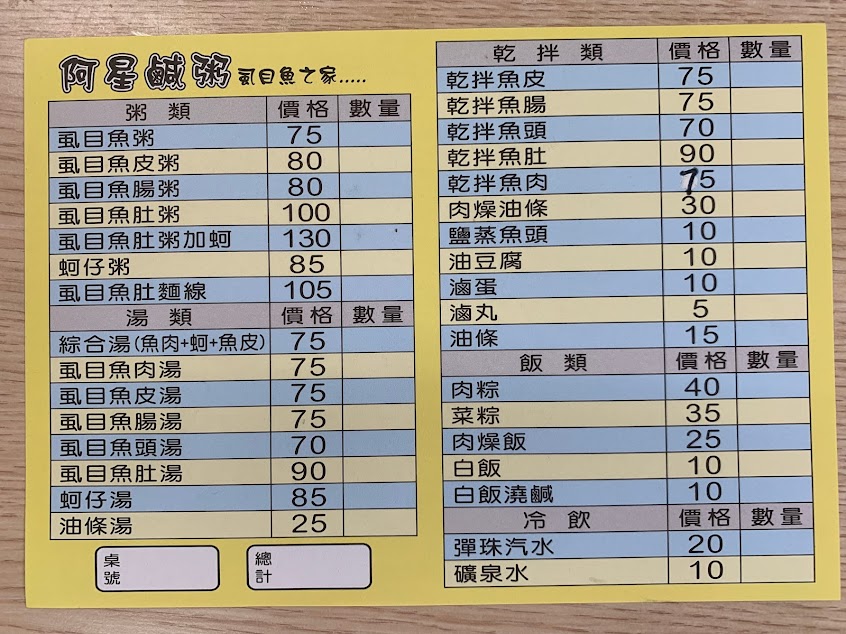 阿星鹹粥 虱目魚之家.....
粥類 價格 數量
虱目魚粥 75
虱目魚皮粥 80
虱目魚腸粥 80
虱目魚肚粥 100
虱目魚肚粥加蚵 130
蚵仔粥 85
虱目魚肚麵線 105
湯類 價格 數量
綜合湯(魚肉+蚵+魚皮) 75
虱目魚肉湯 75
虱目魚皮湯 75
虱目魚腸湯 75
虱目魚頭湯 70
虱目魚肚湯 90
蚵仔湯 85
油條湯 25
桌號
總計
乾拌類 價格 數量
乾拌魚皮 75
乾拌魚腸 75
乾拌魚頭 70
乾拌魚肚 90
乾拌魚肉 75
肉燥油條 30
鹽蒸魚頭 10
油豆腐 10
滷蛋 10
滷丸 5
油條 15
飯類 價格 數量
肉粽 40
菜粽 35
肉燥飯 25
白飯 10
白飯澆鹹 10
冷飲 價格 數量
彈珠汽水 20
礦泉水 10